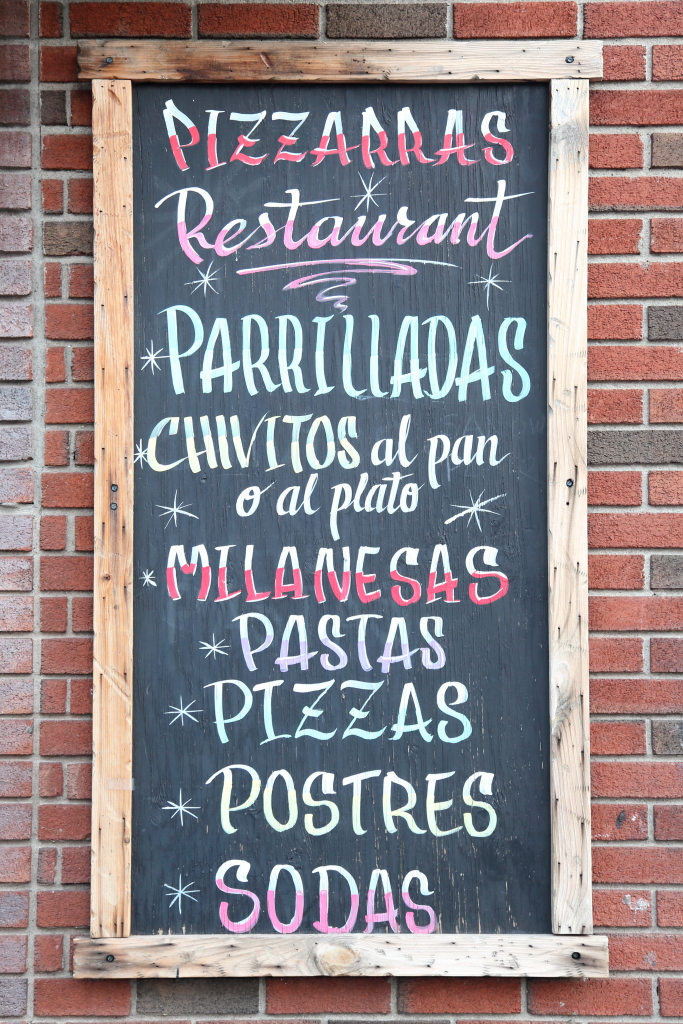 PIZZARRAS
Restaurant
PARRILLADAS
CHIVITOS al pan
o al plato
MILANESAS
PASTAS
PIZZAS
POSTRES
SODAS